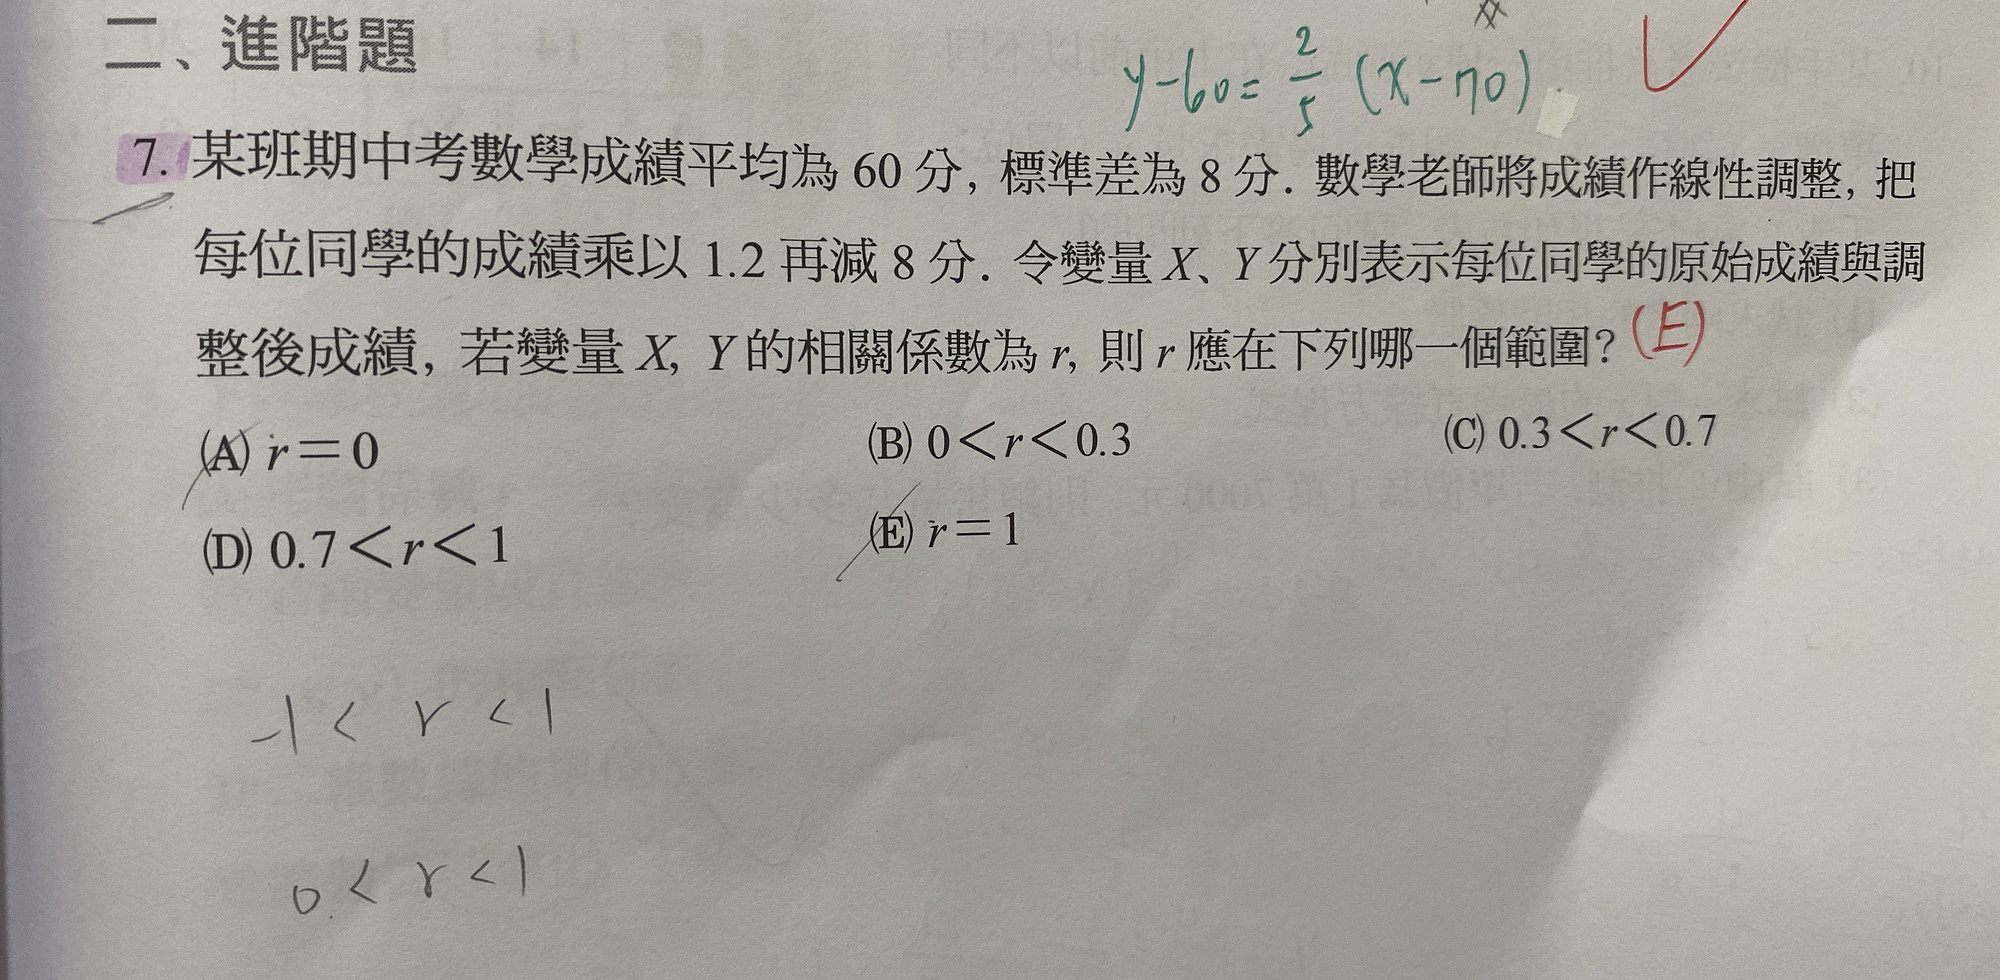 二、進階題
y-60=2/5(x-70).
7. 某班期中考數學成績平均為 60 分, 標準差為 8 分. 數學老師將成績作線性調整, 把
每位同學的成績乘以 1.2 再減 8 分. 令變量 X、Y 分別表示每位同學的原始成績與調
整後成績, 若變量 X, Y 的相關係數為 r, 則 r 應在下列哪一個範圍? (E)
(A) r=0 (B) 0<r<0.3 (C) 0.3<r<0.7
(D) 0.7<r<1 (E) r=1
-1<r<1
0<r<1